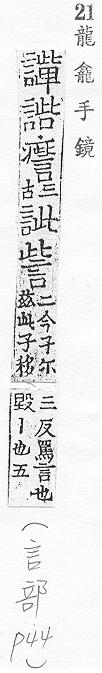 21 龍龕手鏡
三古訿訾二今子尔茲此子移
三反罵言也毀丨也五
(言部 p44)